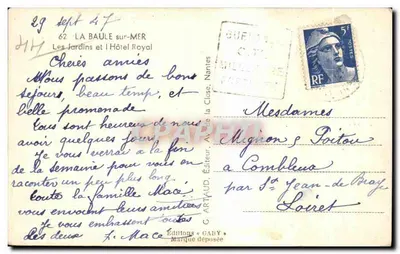 29 sept 47
62 LA BAULE sur-MER
Les Jardins et l'Hôtel Royal
Chères amies
Nous passons de bons
séjours, beau temp, et
belle promenade
Tous sont heureux de nous
avoir quelques jours
Je vous verrai à la fin
de la semaine pour vous en
raconter un peu plus long.
toute la famille Macé
vous envoient leurs amitiés
Je vous embrassent toutes
les deux L. Macé
G. ARTAUD, Éditeur, de la Close, Nantes
Éditions "GABY"
Marque déposée
5F
RF
Mesdames
Mignon & Poitou
à Combleux
par St Jean-de Braye
Loiret